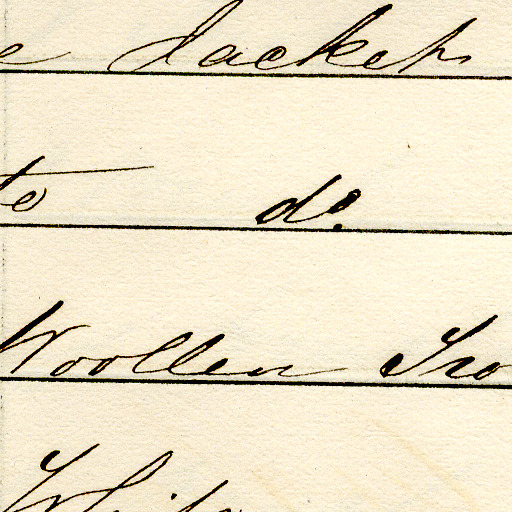 e Jackets
te do
Woollen Tro
Whit